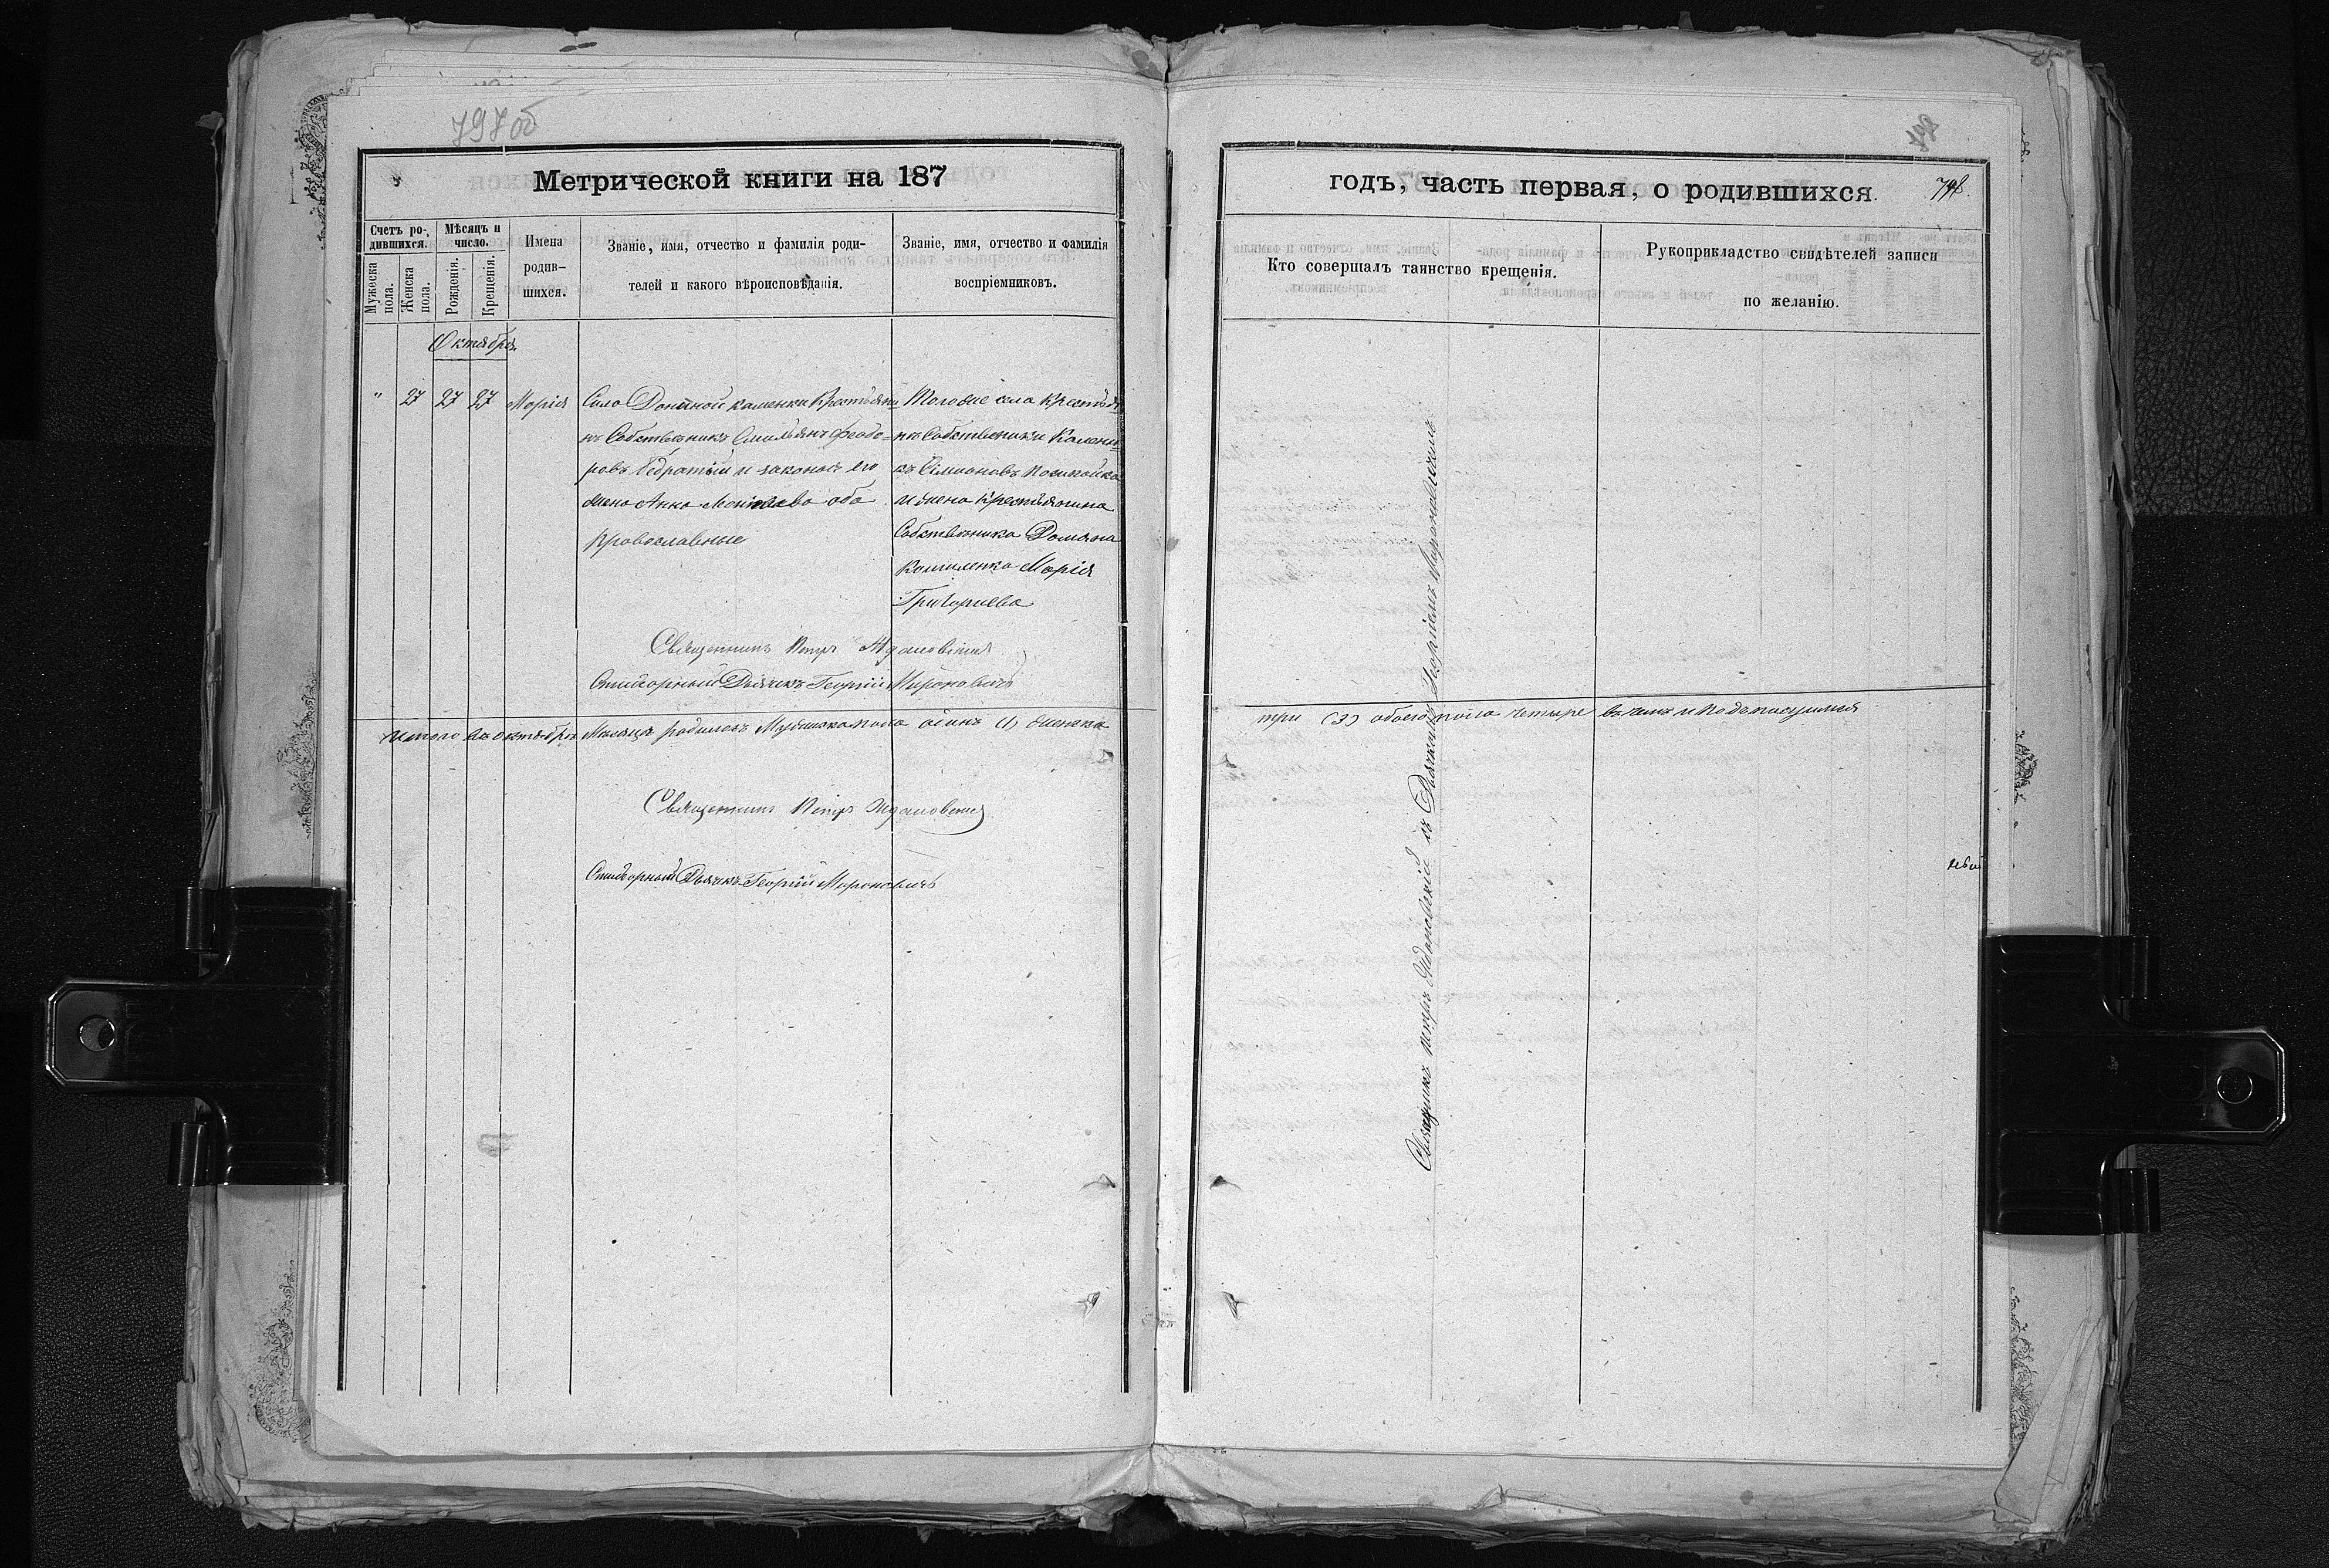 797об
Метрической книги на 187
Счетъ ро-
дившихся.
Мужеска
пола.
Женска
пола.
Мѣсяцъ и
число.
Рожденія.
Крещенія.
Имена
родив-
шихся.
Званіе, имя, отчество и фамилія роди-
телей и какого вѣроисповѣданія.
Званіе, имя, отчество и фамилія
воспріемниковъ.
Октября
" 27 27 27 Марія
Села каменки Крестьяни
нъ Собственникъ Феодо=
ровъ и законая его
жена Анна оба
православные
села Крестья
нъ Собственникъ
къ Симоновъ
и жена Крестьянина
Собственника
Марія
Григориева
Священникъ Петръ Ждановскій
Дьячекъ Георгій Мироновичъ
Итого въ октябрѣ Месяцѣ родилось Мужескаго пола одинъ (1) женска
Священникъ Петръ Ждановскій
Дьячекъ Георгій Мироновичъ
годъ, часть первая, о родившихся.
798.
Кто совершалъ таинство крещенія.
Рукоприкладство свидѣтелей записи
по желанію.
Священникъ Петръ Ждановскій съ Дьячкомъ Георгіемъ Мироновичемъ
три (3) обоего пола четыре въ чемъ и подписуимся